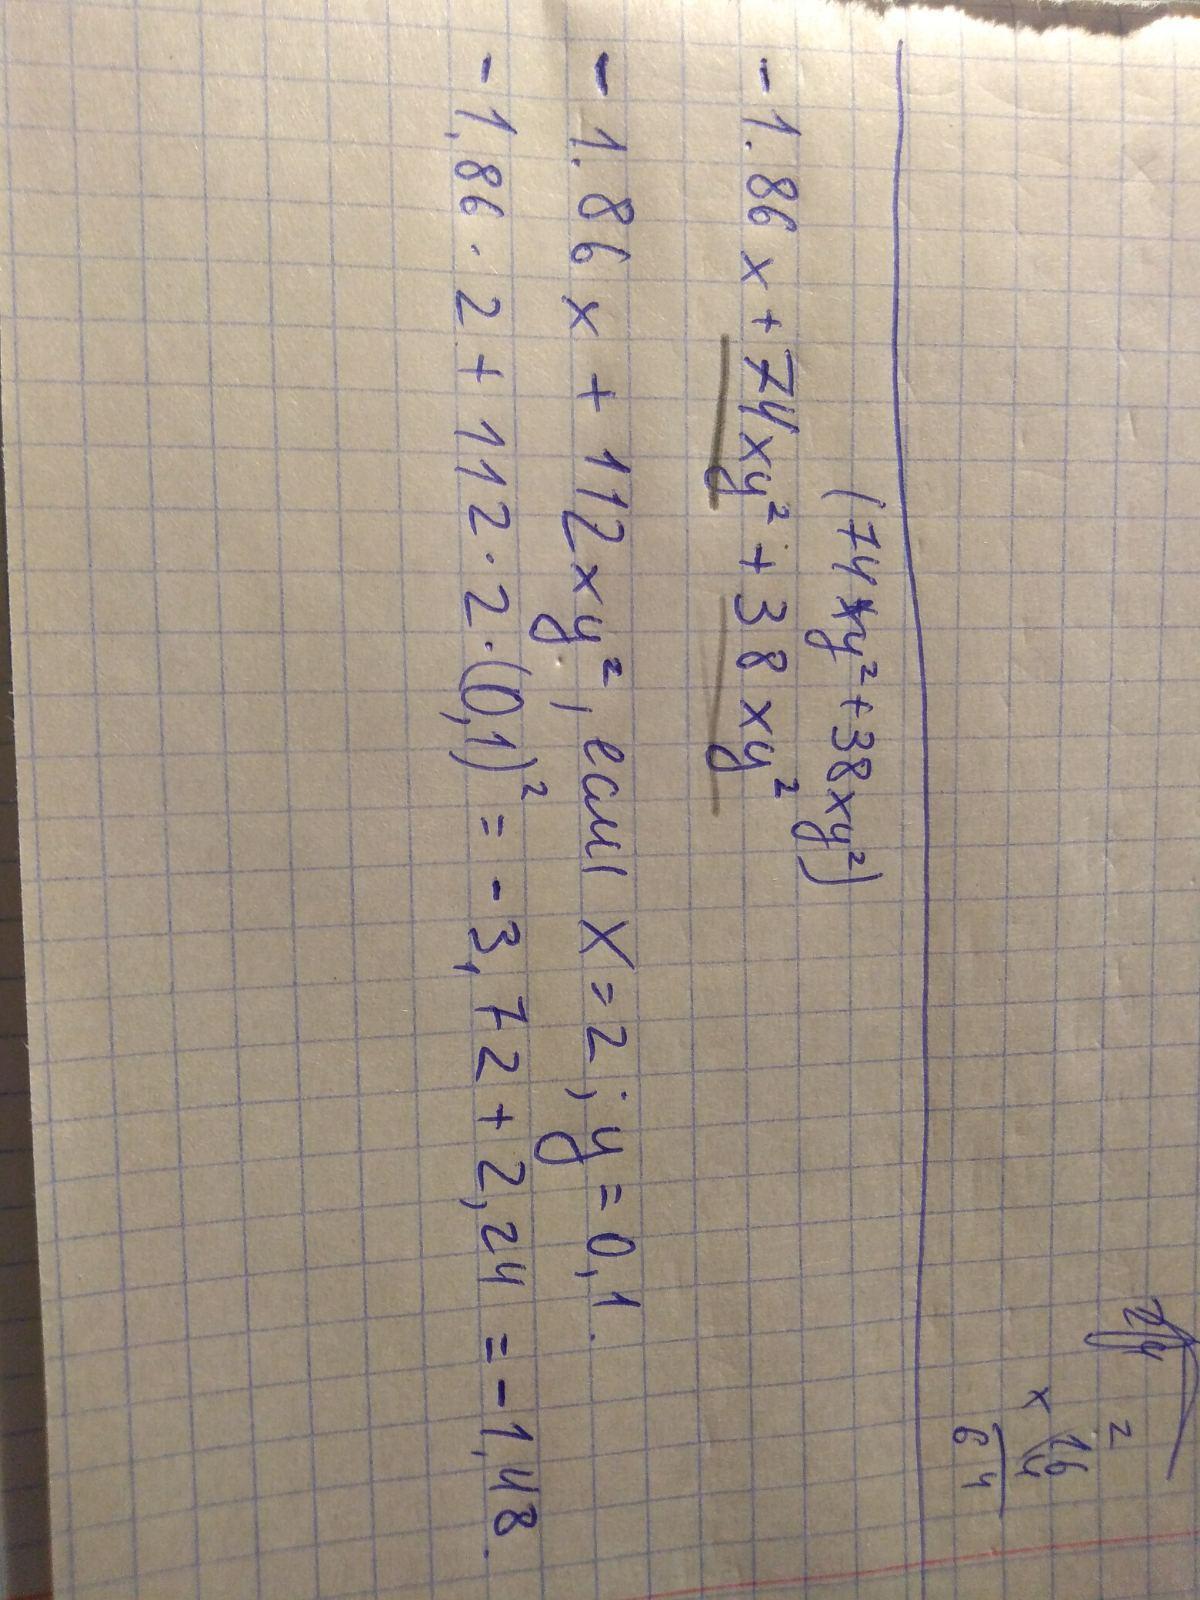 2
16
× 4
64
(74xy²+38xy²)
-1.86x+74xy²+38xy²
-1.86x + 112xy², если x=2; y=0,1.
-1,86·2+112·2·(0,1)² = -3,72+2,24 = -1,48.